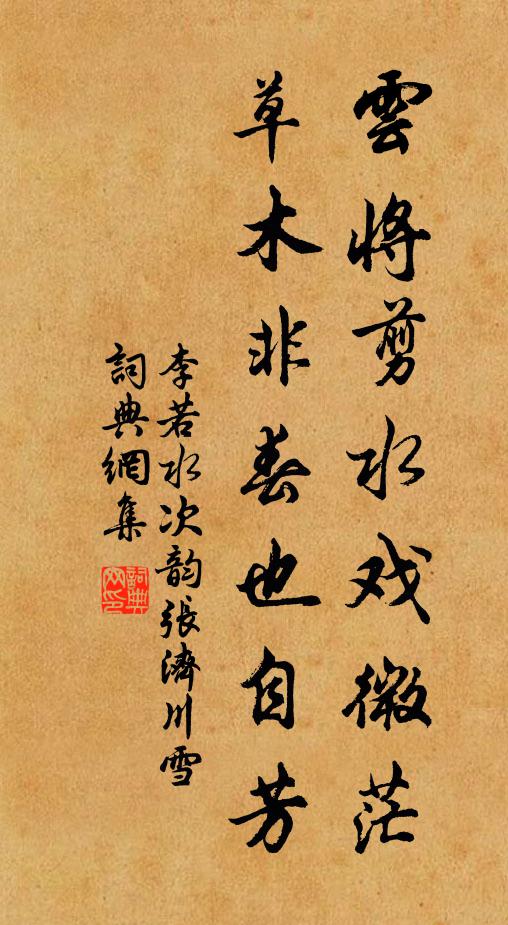 雲將剪水戏微茫
草木非春也自芳
李若水次韵張濟川雪
詞典網集
詞典網印